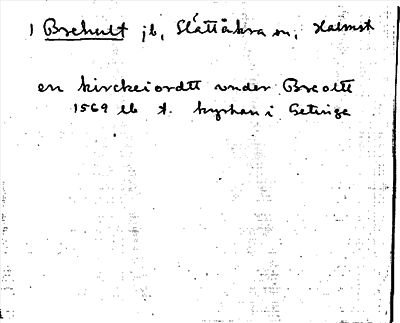 1 Brehult jb, Slättåkra sn, Halmst
en kirckeiordtt vnder Breoltt
1569 lb t. kyrkan i Getinge